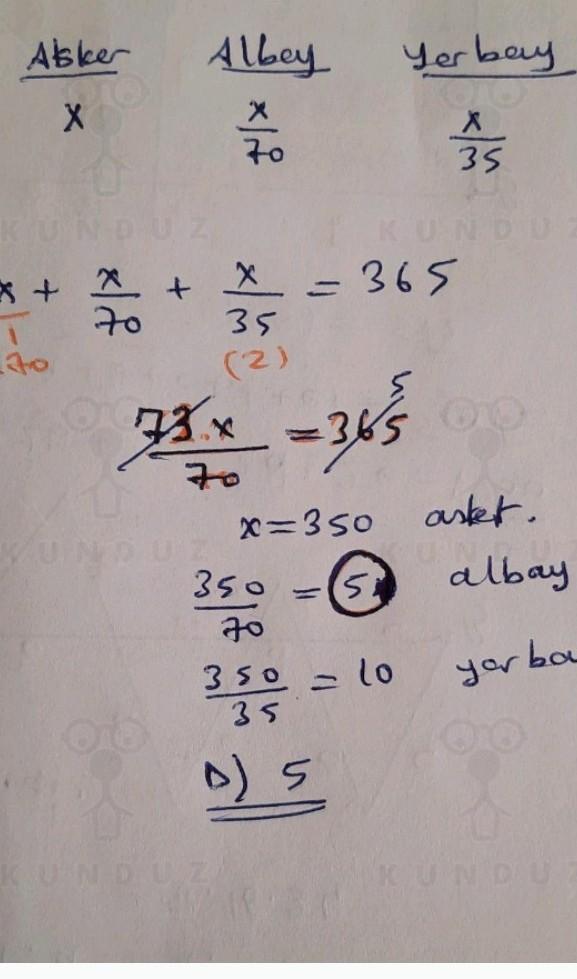 Asker Albey yerbay
x x/70 x/35
KUNDUZ KUNDUZ
x/1 + x/70 + x/35 = 365
70 (2)
5
73.x/70 = 365
x=350 asker.
KUNDUZ KUNDUZ
350/70 = 5 albay
350/35 = 10 yarba
D) 5
KUNDUZ KUNDUZ